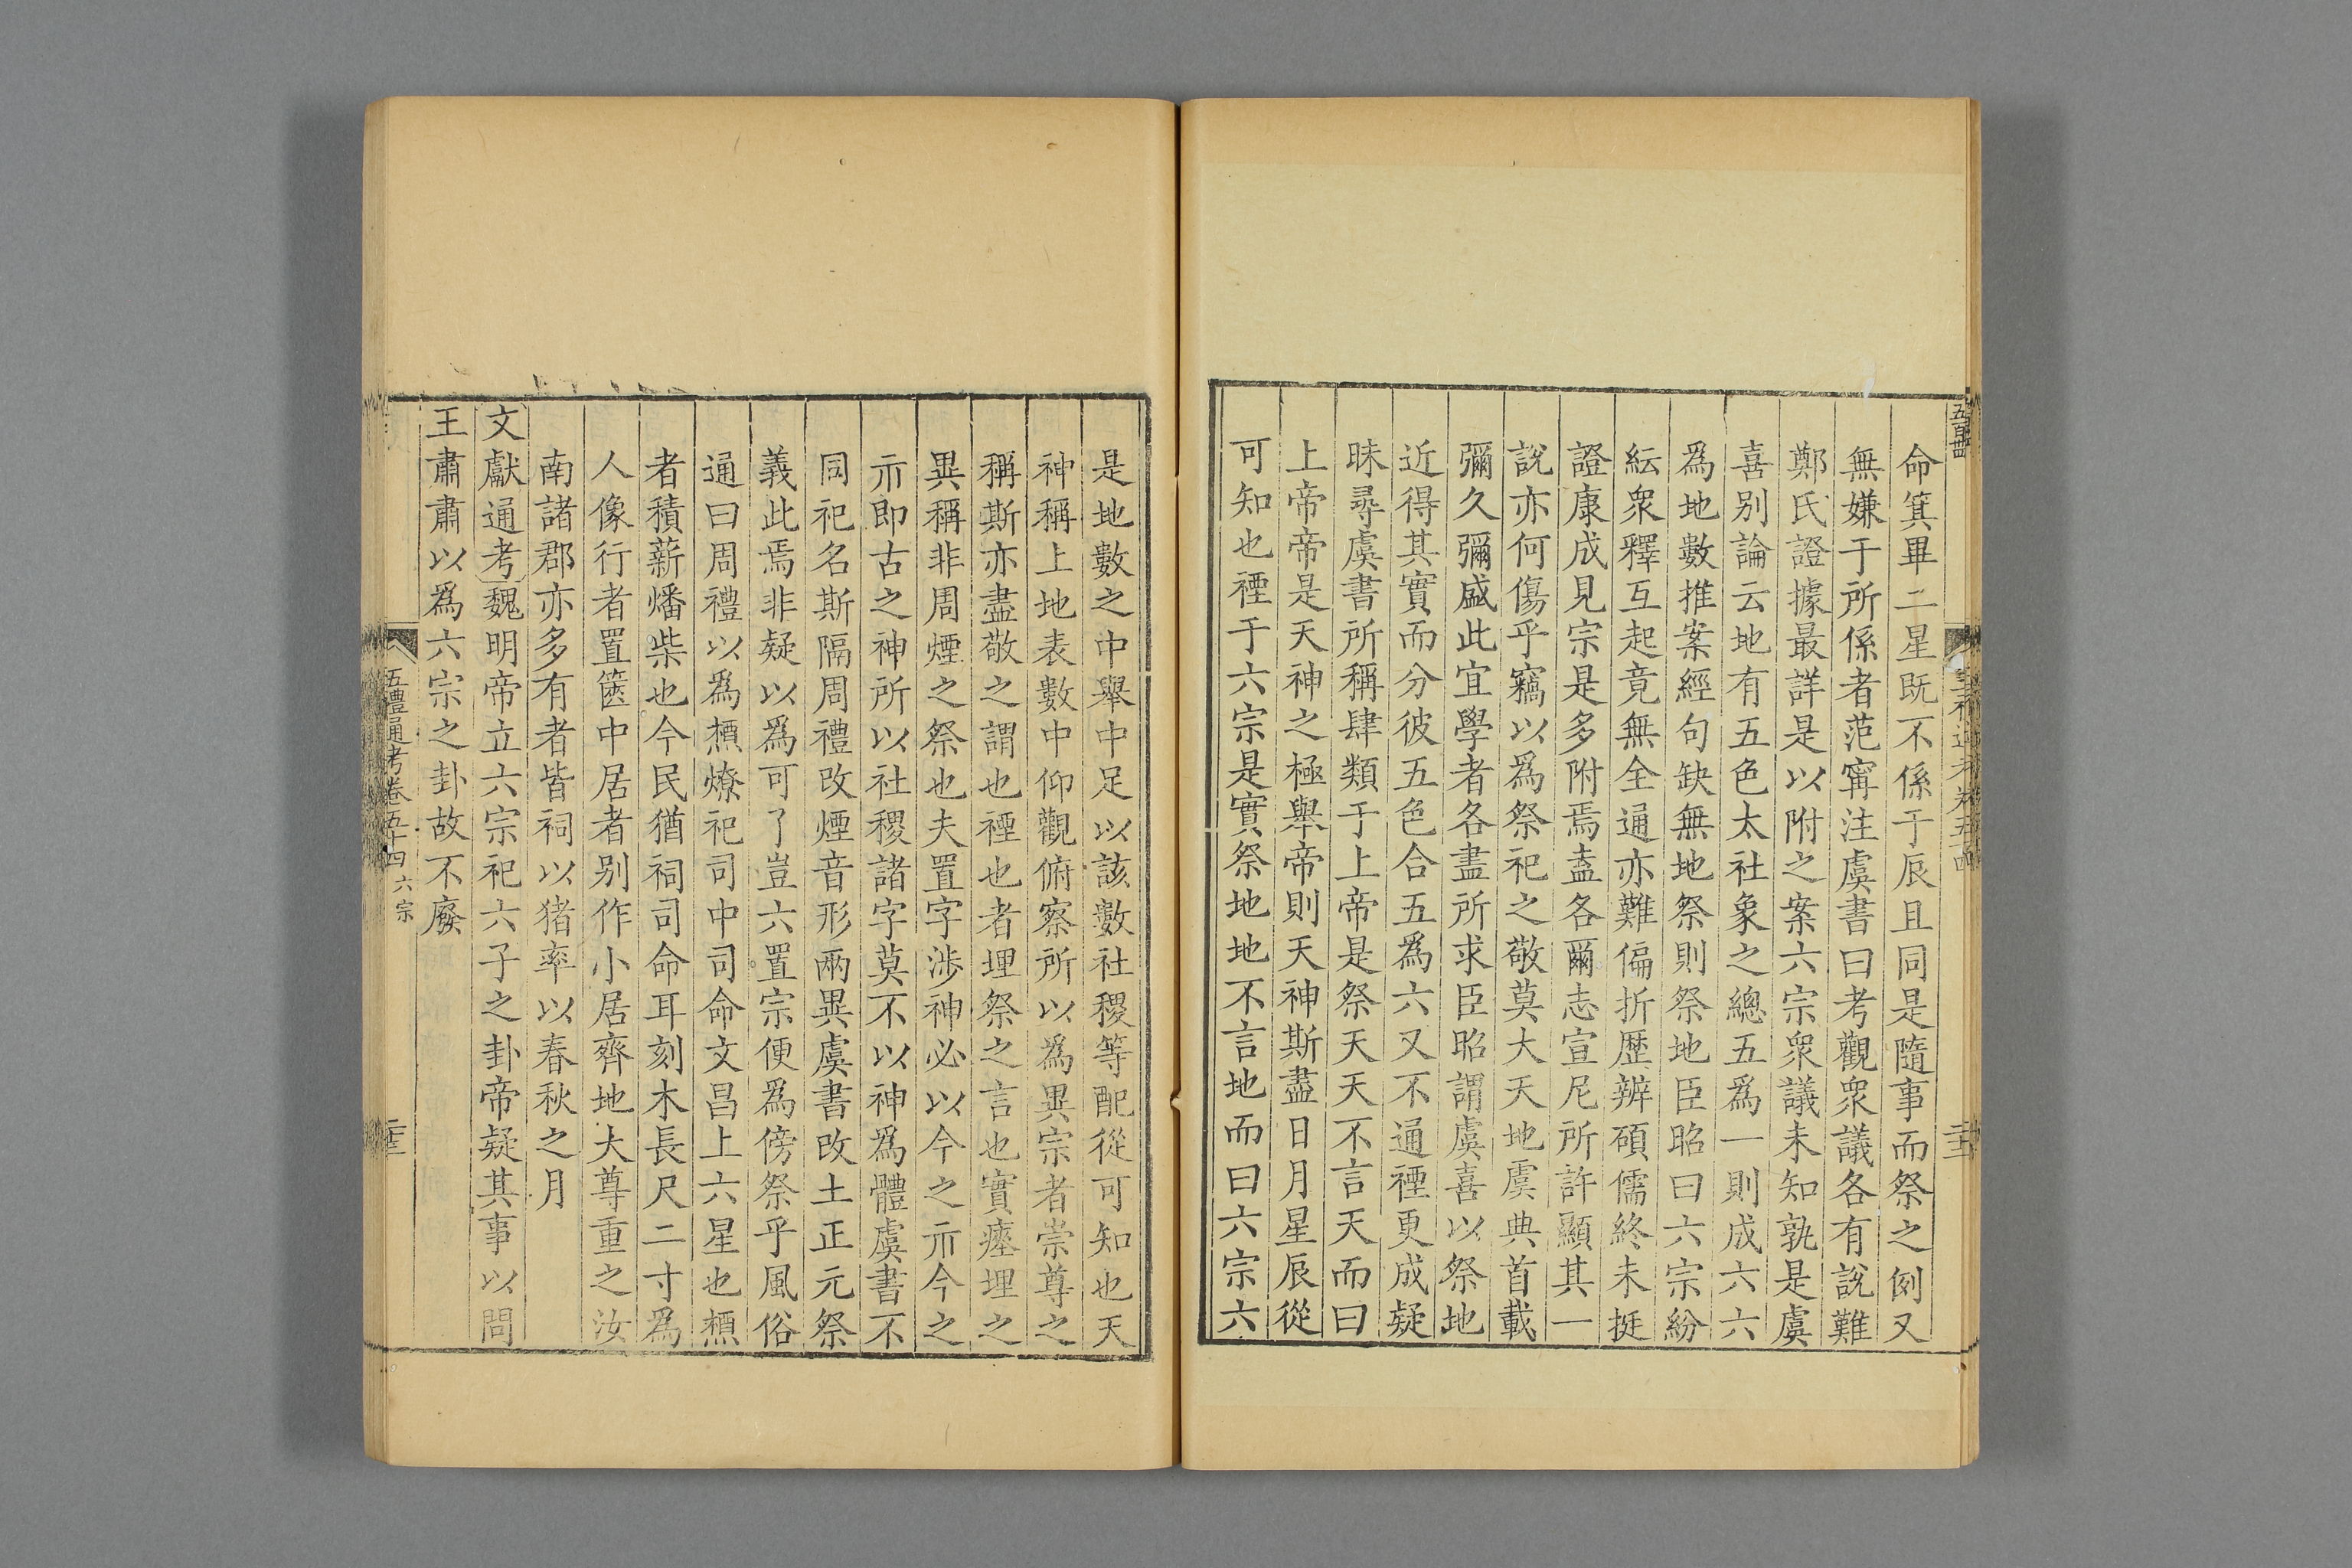 命箕畢二星既不係于辰且同是隨事而祭之例又
無嫌于所係者范甯注虞書曰考觀衆議各有說難
鄭氏證據最詳是以附之案六宗衆議未知孰是虞
喜别論云地有五色太社象之總五爲一則成六六
爲地數推案經句缺無地祭則祭地臣昭曰六宗紛
紜衆釋互起竟無全通亦難偏折歷辨碩儒終未挺
證康成見宗是多附焉盍各爾志宣尼所許顯其一
說亦何傷乎竊以爲祭祀之敬莫大天地虞典首載
彌久彌盛此宜學者各盡所求臣昭謂虞喜以祭地
近得其實而分彼五色合五爲六又不通禋更成疑
昧尋虞書所稱肆類于上帝是祭天天不言天而曰
上帝帝是天神之極舉帝則天神斯盡日月星辰從
可知也禋于六宗是實祭地地不言地而曰六宗六
是地數之中舉中足以該數社稷等配從可知也天
神稱上地表數中仰觀俯察所以爲異宗者崇尊之
稱斯亦盡敬之謂也禋也者埋祭之言也實瘞埋之
異稱非周煙之祭也夫置字涉神必以今之示今之
示即古之神所以社稷諸字莫不以神爲體虞書不
同祀名斯隔周禮改煙音形兩異虞書改土正元祭
義此焉非疑以爲可了豈六置宗便爲傍祭乎風俗
通曰周禮以爲槱燎祀司中司命文昌上六星也槱
者積薪燔柴也今民猶祠司命耳刻木長尺二寸爲
人像行者置篋中居者别作小居齊地大尊重之汝
南諸郡亦多有者皆祠以猪率以春秋之月
文獻通考魏明帝立六宗祀六子之卦帝疑其事以問
王肅肅以爲六宗之卦故不廢
五禮通考卷五十四 六宗